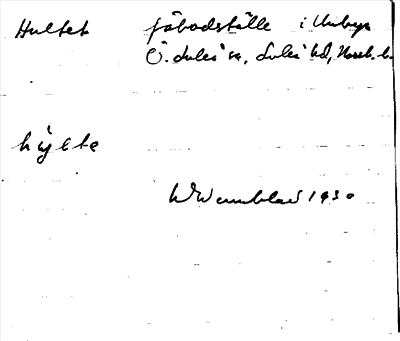 Hultet fäbodställe i Unbyn
Ö. Luleå sn, Luleå hd, Norrb. l.
hy̆lte
W Wennblad 1930